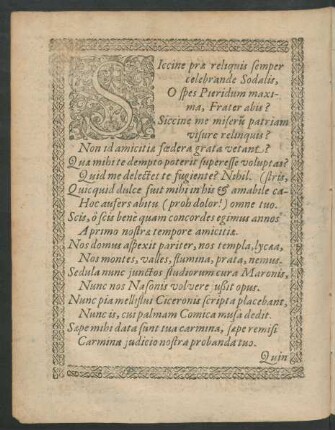 SIccine præ reliquis semper
celebrande Sodalis,
O spes Pieridum maxi-
ma, Frater abis?
Siccine me miserũ patriam
visure relinquis?
Non id amicitiæ fœdera grata vetant?
Qua mihi te dempto poterit superesse voluptas?
Quid me delectet te fugiente? Nihil. (stris,
Quicquid dulce fuit mihi in his & amabile ca-
Hoc aufers abitu (proh dolor!) omne tuo.
Scis, ô scis benè quam concordes egimus annos
A primo nostræ tempore amicitiæ.
Nos domus aspexit pariter, nos templa, lycæa,
Nos montes, valles, flumina, prata, nemus.
Sedula nunc junctos studiorum cura Maronis,
Nunc nos Nasonis volvere jussit opus.
Nunc pia mellitini Ciceronis scripta placebant,
Nunc is, cui palmam Comica musa dedit.
Sæpe mihi data sunt tua carmina, sæpe remisi
Carmina judicio nostra probanda tuo.
Quin